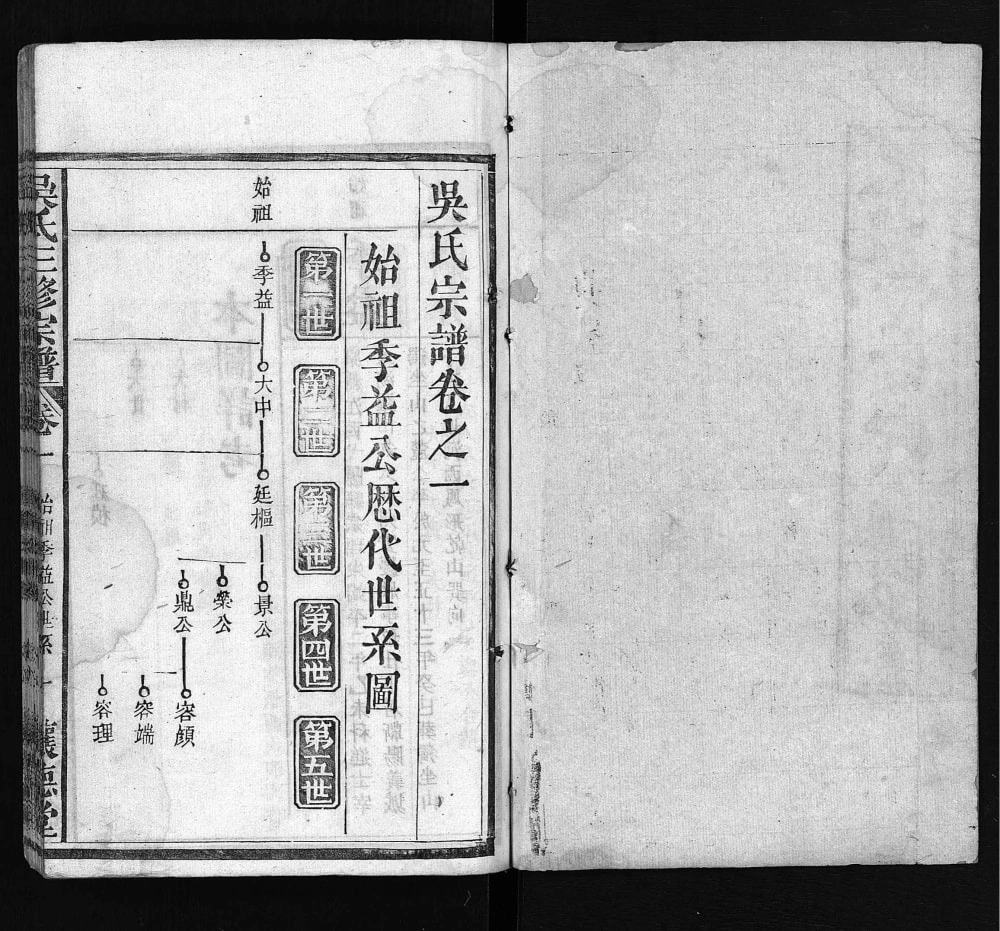 吳氏宗譜卷之一
始祖季益公歷代世系圖
第一世
第二世
第三世
第四世
第五世
始祖
季益
大中
廷樞
景公
榮公
鼎公
容顔
容端
容理
吳氏三修宗譜
卷一
始祖季益公世系
一
讓德堂